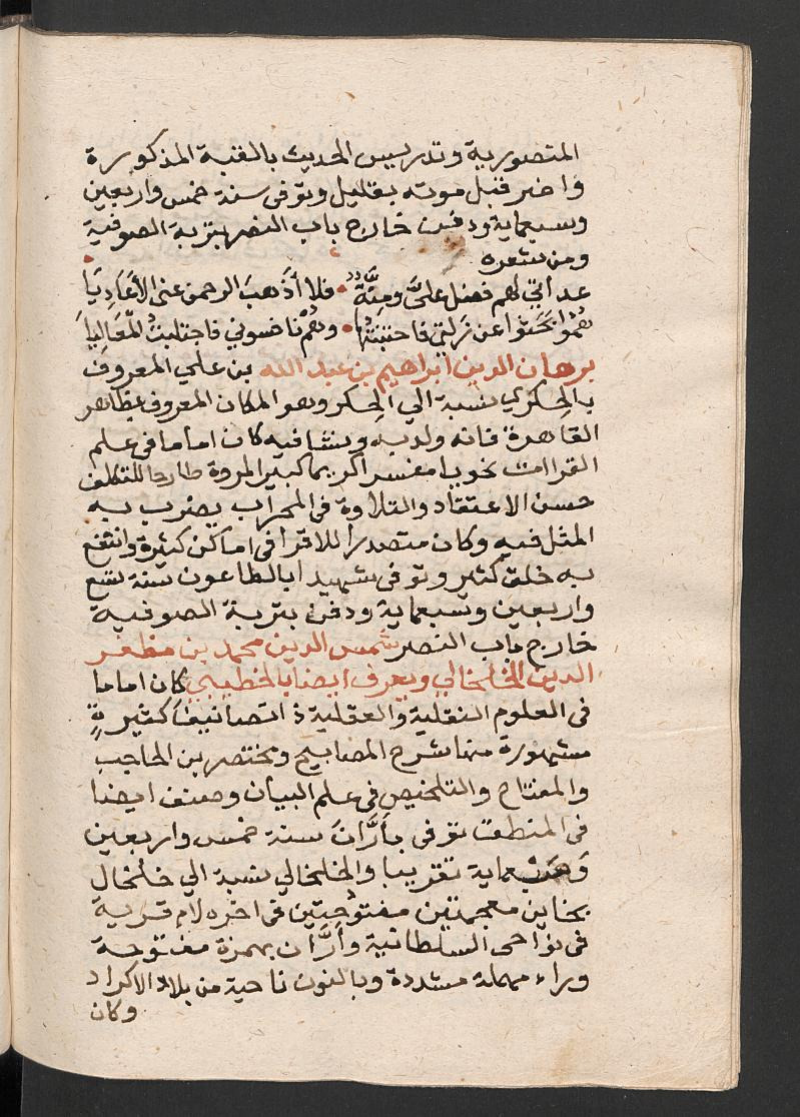 المنصورية وتدريس الحديث بالقبة المذكورة
واضر قبل موته بقليل وتوفى سنة خمس واربعين
وسبعماية ودفن خارج باب النصر بتربة الصوفية
ومن شعره
عداتي لهم فضل علىَّ ومِنَّةٌ فلا أذهبَ الرحمن عنى الأعَادِيَا
همُوا بَحَثوا عن زَلتى فاجتنبتُها وهُمْ نافسوني فاجتلبتُ المَعَالِيا
برهان الدين ابراهيم بن عبد الله بن علي المعروف
بالحِكري نسبة الي الحِكر وهو المكان المعروف بظاهر
القاهرة فانه ولد به ونشا فيه كان اماما في علم
القراات نحويا مفسرا كريما كبير المروة طارحا للتكلف
حسن الاعتقاد والتلاوة في المحراب يضرب به
المثل فيه وكان متصدرا للاقرا في اماكن كثيرة وانتفع
به خلق كثير وتوفى شهيدا بالطاعون سنة تسع
واربعين وسبعماية ودفن بتربة الصوفية
خارج باب النصر شمس الدين محمد بن مظفر
الدين الخلخالي ويعرف ايضا بالخطيبي كان اماما
في العلوم النقلية والعقلية ذا تصانيف كثيرةٍ
مشهورة منها شرح المصابيح ومختصر بن الحاجب
والمفتاح والتلخيص في علم البيان وصنف ايضا
فى المنطق توفى بأرَّان سنة خمس واربعين
وسبعماية تقريبا والخلخالي نسبة الي خلخال
بخاين معجمتين مفتوحتين في اخره لام قرية
في نواحى السلطانية وأرَّان بهمزة مفتوحة
وراء مهملة مشددة وبالنون ناحية من بلاد الاكراد
وكان